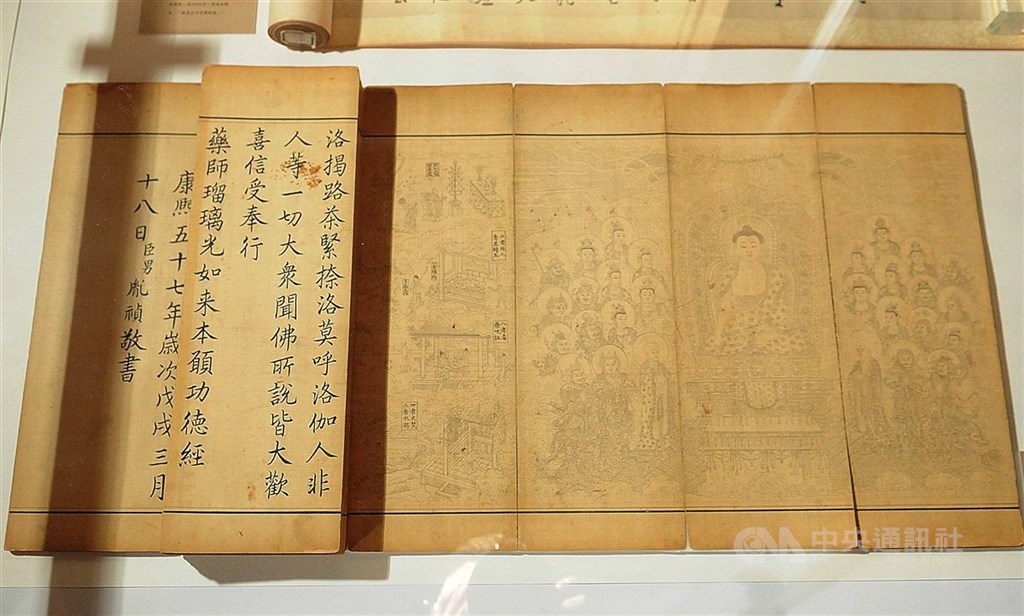 洛揭路荼緊捺洛莫呼洛伽人非
人等一切大衆聞佛所說皆大歡
喜信受奉行
藥師瑠璃光如来本願功德經
康熙五十七年歲次戊戌三月
十八日臣男胤禎敬書
中央通訊社